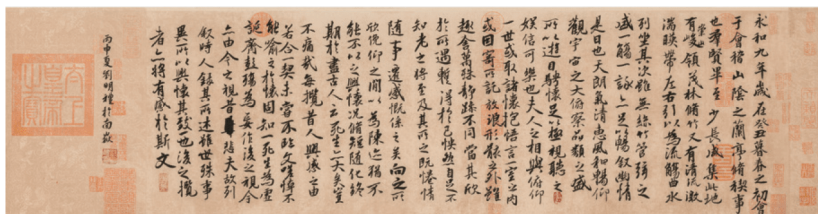 永和九年歲在癸丑暮春之初會
于會稽山陰之蘭亭脩禊事
也羣賢畢至少長咸集此地
有崇山峻領茂林脩竹又有清流激
湍暎帶左右引以為流觴曲水
列坐其次雖無絲竹管弦之
盛一觴一詠亦足以暢敘幽情
是日也天朗氣清惠風和暢仰
觀宇宙之大俯察品類之盛
所以遊目騁懷足以極視聽之
娛信可樂也夫人之相與俯仰
一世或取諸懷抱悟言一室之內
或因寄所託放浪形骸之外雖
趣舍萬殊靜躁不同當其欣
於所遇暫得於己快然自足不
知老之將至及其所之既惓情
隨事遷感慨係之矣向之所
欣俛仰之閒以為陳迹猶不
能不以之興懷況脩短隨化終
期於盡古人云死生亦大矣豈
不痛哉每攬昔人興感之由
若合一契未嘗不臨文嗟悼不
能喻之於懷固知一死生為虛
誕齊彭殤為妄作後之視今
亦由今之視昔悲夫故列
敘時人錄其所述雖世殊事
異所以興懷其致一也後之攬
者亦將有感於斯文
丙申夏劉明